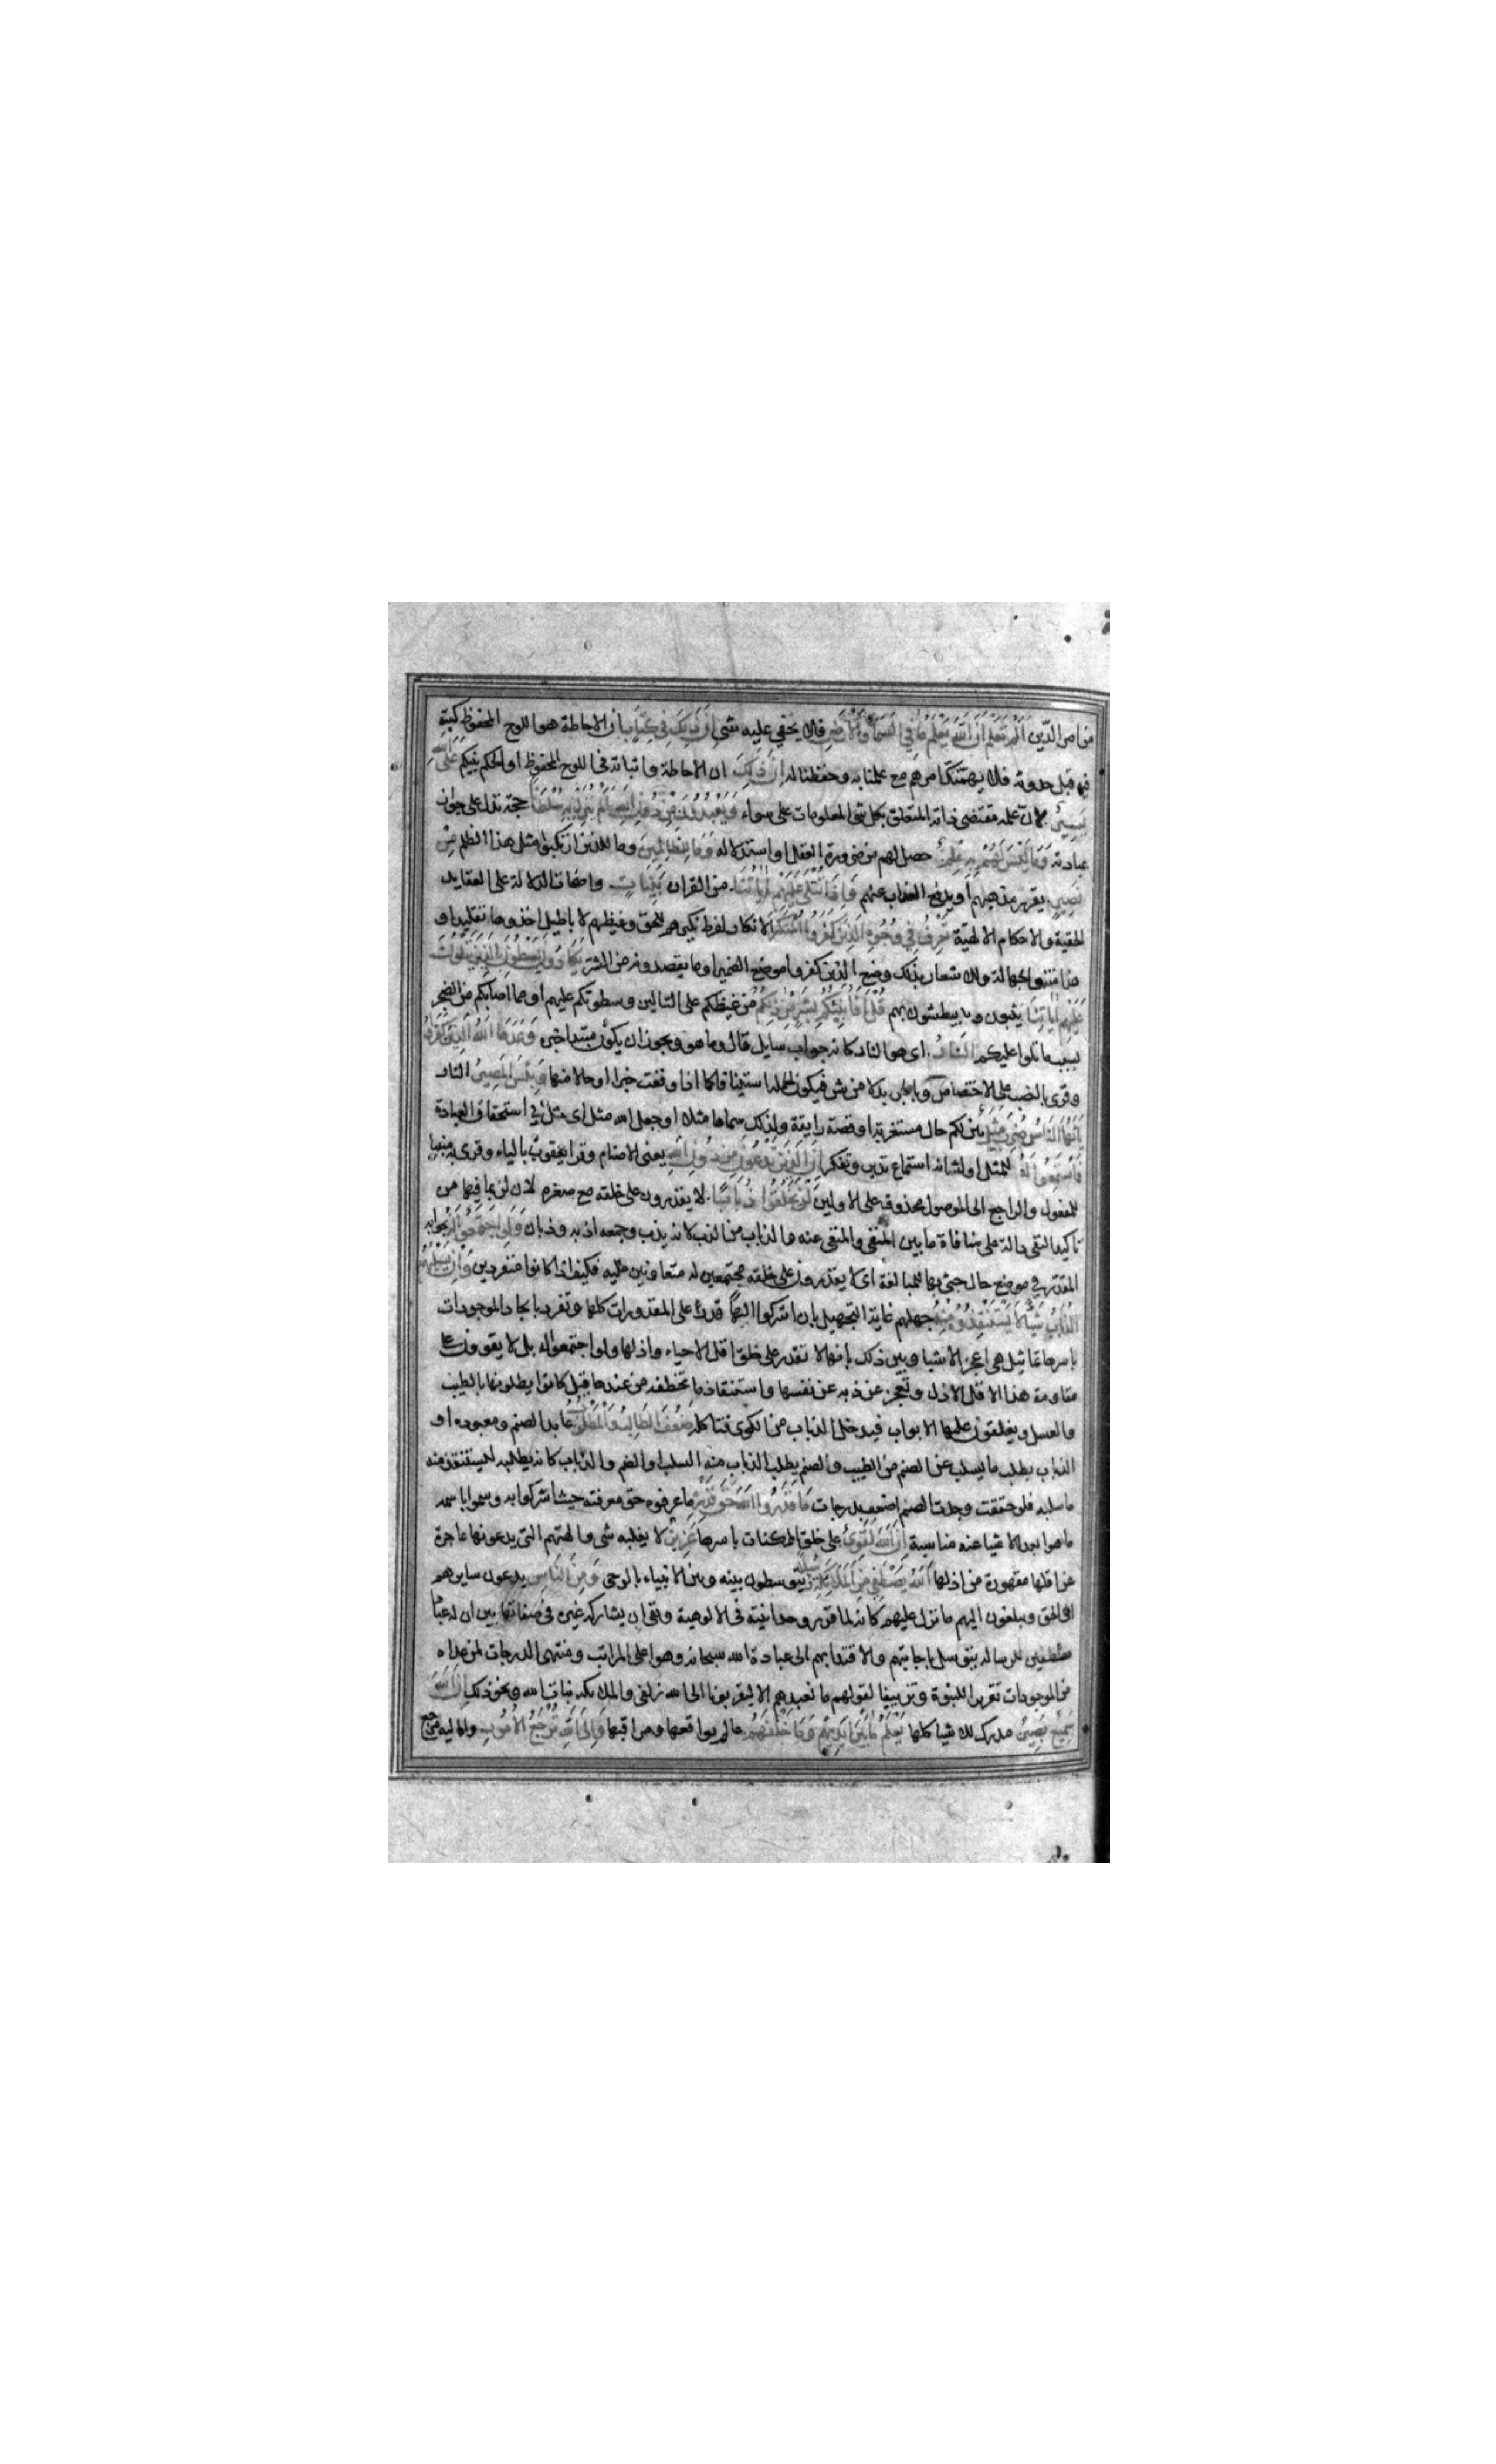 من امر الدّين اَلَمْ تَعْلَمْ اَنَّ اللهَ يَعْلَمُ مَا فِي السَّمَاءِ وَالْاَرْضِ فلا يخفى عليه شئ اِنَّ ذٰلِكَ فِي كِتَابٍ بان الاحاطة هو اللوح المحفوظ كتبه
فيه قبل حدوثه فلا يهمّنك امرهم مع علمنا به وحفظنا له اِنَّ ذٰلِكَ ان الاحاطة واثباته في اللوح المحفوظ او الحكم بينكم عَلَى اللهِ
يَسِيرٌ لان علمه مقتضى ذاته المتعلق بكل المعلومات على سواء وَيَعْبُدُونَ مِنْ دُونِ اللهِ مَا لَمْ يُنَزِّلْ بِهِ سُلْطَانًا حجة تدل على جواز
عبادته وَمَا لَيْسَ لَهُمْ بِهِ عِلْمٌ حصل لهم من ضرورة العقل او استدلاله وَمَا لِلظَّالِمِينَ وما للذين ارتكبوا مثل هذا الظلم مِنْ
نَصِيرٍ يقرر مذهبهم او يدفع العذاب عنهم وَاِذَا تُتْلَى عَلَيْهِمْ اٰيَاتُنَا من القران بَيِّنَاتٍ واضحات الدلالة على العقايد
الحقية والاحكام الالهية تَعْرِفُ فِي وُجُوهِ الَّذِينَ كَفَرُوا الْمُنْكَرَ الانكار لفرط نكيرهم للحق وغيظهم لاباطيل اخذوها تقليدا و
هذا منتهى الجهالة وللاشعار بذلك وضع الذين كفروا موضع الضمير او ما يقصدونه من الشر يَكَادُونَ يَسْطُونَ بِالَّذِينَ يَتْلُونَ
عَلَيْهِمْ اٰيَاتِنَا يثبون ويبطشون بهم قُلْ اَفَاُنَبِّئُكُمْ بِشَرٍّ مِنْ ذٰلِكُمْ من غيظكم على التالين وسطوتكم عليهم او مما اصابكم من الضجر
بسبب ما تلوا عليكم النَّارُ اى هو النار كانه جواب سايل قال وما هو ويجوز ان يكون مبتدا خبره وَعَدَهَا اللهُ الَّذِينَ كَفَرُوا
وقرى بالنصب على الاختصاص وبالجر بدلا من شر فيكون الجملة استينافا كما اذا وقعت خبرا او حالا منها وَبِئْسَ الْمَصِيرُ النار
يَا اَيُّهَا النَّاسُ ضُرِبَ مَثَلٌ بين لكم حال مستغربة او قصة رايقة ولذلك سماها مثلا او جعل لله مثل اى مثل في استحقاق العبادة
فَاسْتَمِعُوا لَهُ للمثل او لشانه استماع تدبر وتفكر اِنَّ الَّذِينَ تَدْعُونَ مِنْ دُونِ اللهِ يعنى الاصنام وقرا يعقوب بالياء وقرى به مبنيا
للمفعول والراجع الى الموصول محذوف على الاولين لَنْ يَخْلُقُوا ذُبَابًا لا يقدرون على خلقه مع صغره لان لن بما فيها من
تاكيد النفى دالة على منافاة ما بين المنفى والمنفى عنه والذباب من الذب لانه يذب وجمعه اذبه وذبان وَلَوِ اجْتَمَعُوا لَهُ بجوابه
المقدر في موضع حال جئ بها للمبالغة اى لا يقدرون على خلقه مجتمعين له متعاونين عليه فكيف اذا كانوا منفردين وَاِنْ يَسْلُبْهُمُ
الذُّبَابُ شَيْئًا لَا يَسْتَنْقِذُوهُ مِنْهُ جهلهم غاية التجهيل بان اشركوا الها قدر على المقدورات كلها وتفرد بايجاد الموجودات
باسرها تماثيل هى اعجز الاشيا وبين ذلك بانها لا تقدر على خلق اقل الاحياء واذلها ولو اجتمعوا له بل لا يقوون على
مقاومة هذا الاقل الاذل وتعجز عن ذبه عن نفسها واستنقاذ ما تخطفه من عندها قيل كانوا يطلونها بالطيب
والعسل ويغلقون عليها الابواب فيدخل الذباب من الكوى فتاكله ضَعُفَ الطَّالِبُ وَالْمَطْلُوبُ عابد الصنم ومعبوده او
الذباب يطلب ما يسلب عن الصنم من الطيب والصنم يطلب الذباب منه السلب او الصنم والذباب كانه يطلبه ليستنقذ منه
ما سلبه فلو حققت وجدت الصنم اضعف بدرجات مَا قَدَرُوا اللهَ حَقَّ قَدْرِهِ ما عرفوه حق معرفته حيث اشركوا به وسموا باسمه
ما هو ابعد الاشيا عنه مناسبة اِنَّ اللهَ لَقَوِيٌّ على خلق الممكنات باسرها عَزِيزٌ لا يغلبه شى والهتهم التى يدعونها عاجزة
عن اقلها مقهورة من اذلها اَللهُ يَصْطَفِي مِنَ الْمَلٰئِكَةِ رُسُلًا يتوسطون بينه وبين الانبياء بالوحى وَمِنَ النَّاسِ يدعون سايرهم
الى الحق ويبلغون اليهم ما نزل عليهم كانه لما قرر وحدانيته في الالوهية ونفى ان يشاركه غيره في صفاتها بين ان له عبادا
مصطفين للرسالة يتوسل باجابتهم والاقتدا بهم الى عبادة الله سبحانه وهو اعلى المراتب ومنتهى الدرجات لمن عداه
من الموجودات تقريرا للنبوة وتزييفا لقولهم ما نعبدهم الا ليقربونا الى الله زلفى والملائكة بنات الله ونحو ذلك اِنَّ اللهَ
سَمِيعٌ بَصِيرٌ مدرك للاشيا كلها يَعْلَمُ مَا بَيْنَ اَيْدِيهِمْ وَمَا خَلْفَهُمْ عالم بواقعها ومتراقبها وَاِلَى اللهِ تُرْجَعُ الْاُمُورُ واليه مرجع